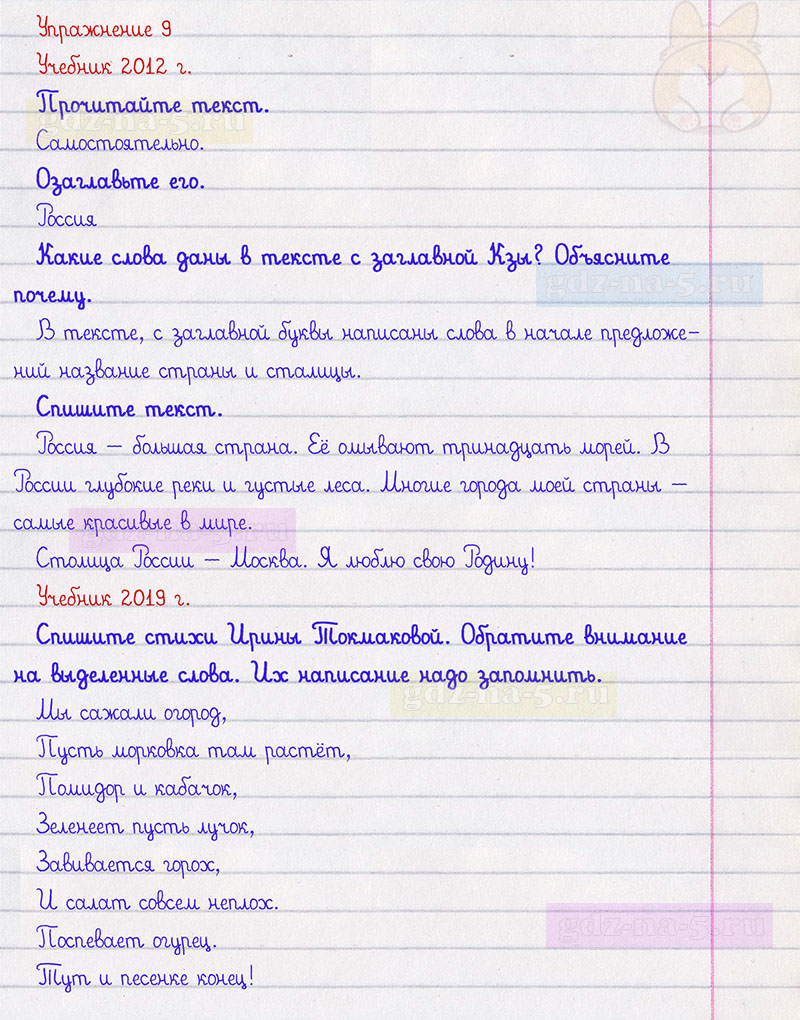 Упражнение 9
Учебник 2012 г.
Прочитайте текст.
gdz-na-5.ru
Самостоятельно.
Озаглавьте его.
Россия
Какие слова даны в тексте с заглавной Кзы? Объясните
gdz-na-5.ru
почему.
В тексте, с заглавной буквы написаны слова в начале предложе-
ний название страны и сталицы.
Спишите текст.
Россия — большая страна. Её омывают тринадцать морей. В
России глубокие реки и густые леса. Многие города моей страны —
самые красивые в мире.
gdz-na-5.ru
Столица России — Москва. Я люблю свою Родину!
Учебник 2019 г.
Спишите стихи Ирины Токмаковой. Обратите внимание
на выделенные слова. Их написание надо запомнить.
gdz-na-5.ru
Мы сажали огород,
Пусть морковка там растёт,
Помидор и кабачок,
Зеленеет пусть лучок,
Завивается горох,
И салат совсем неплох.
gdz-na-5.ru
Поспевает огурец.
Тут и песенке конец!